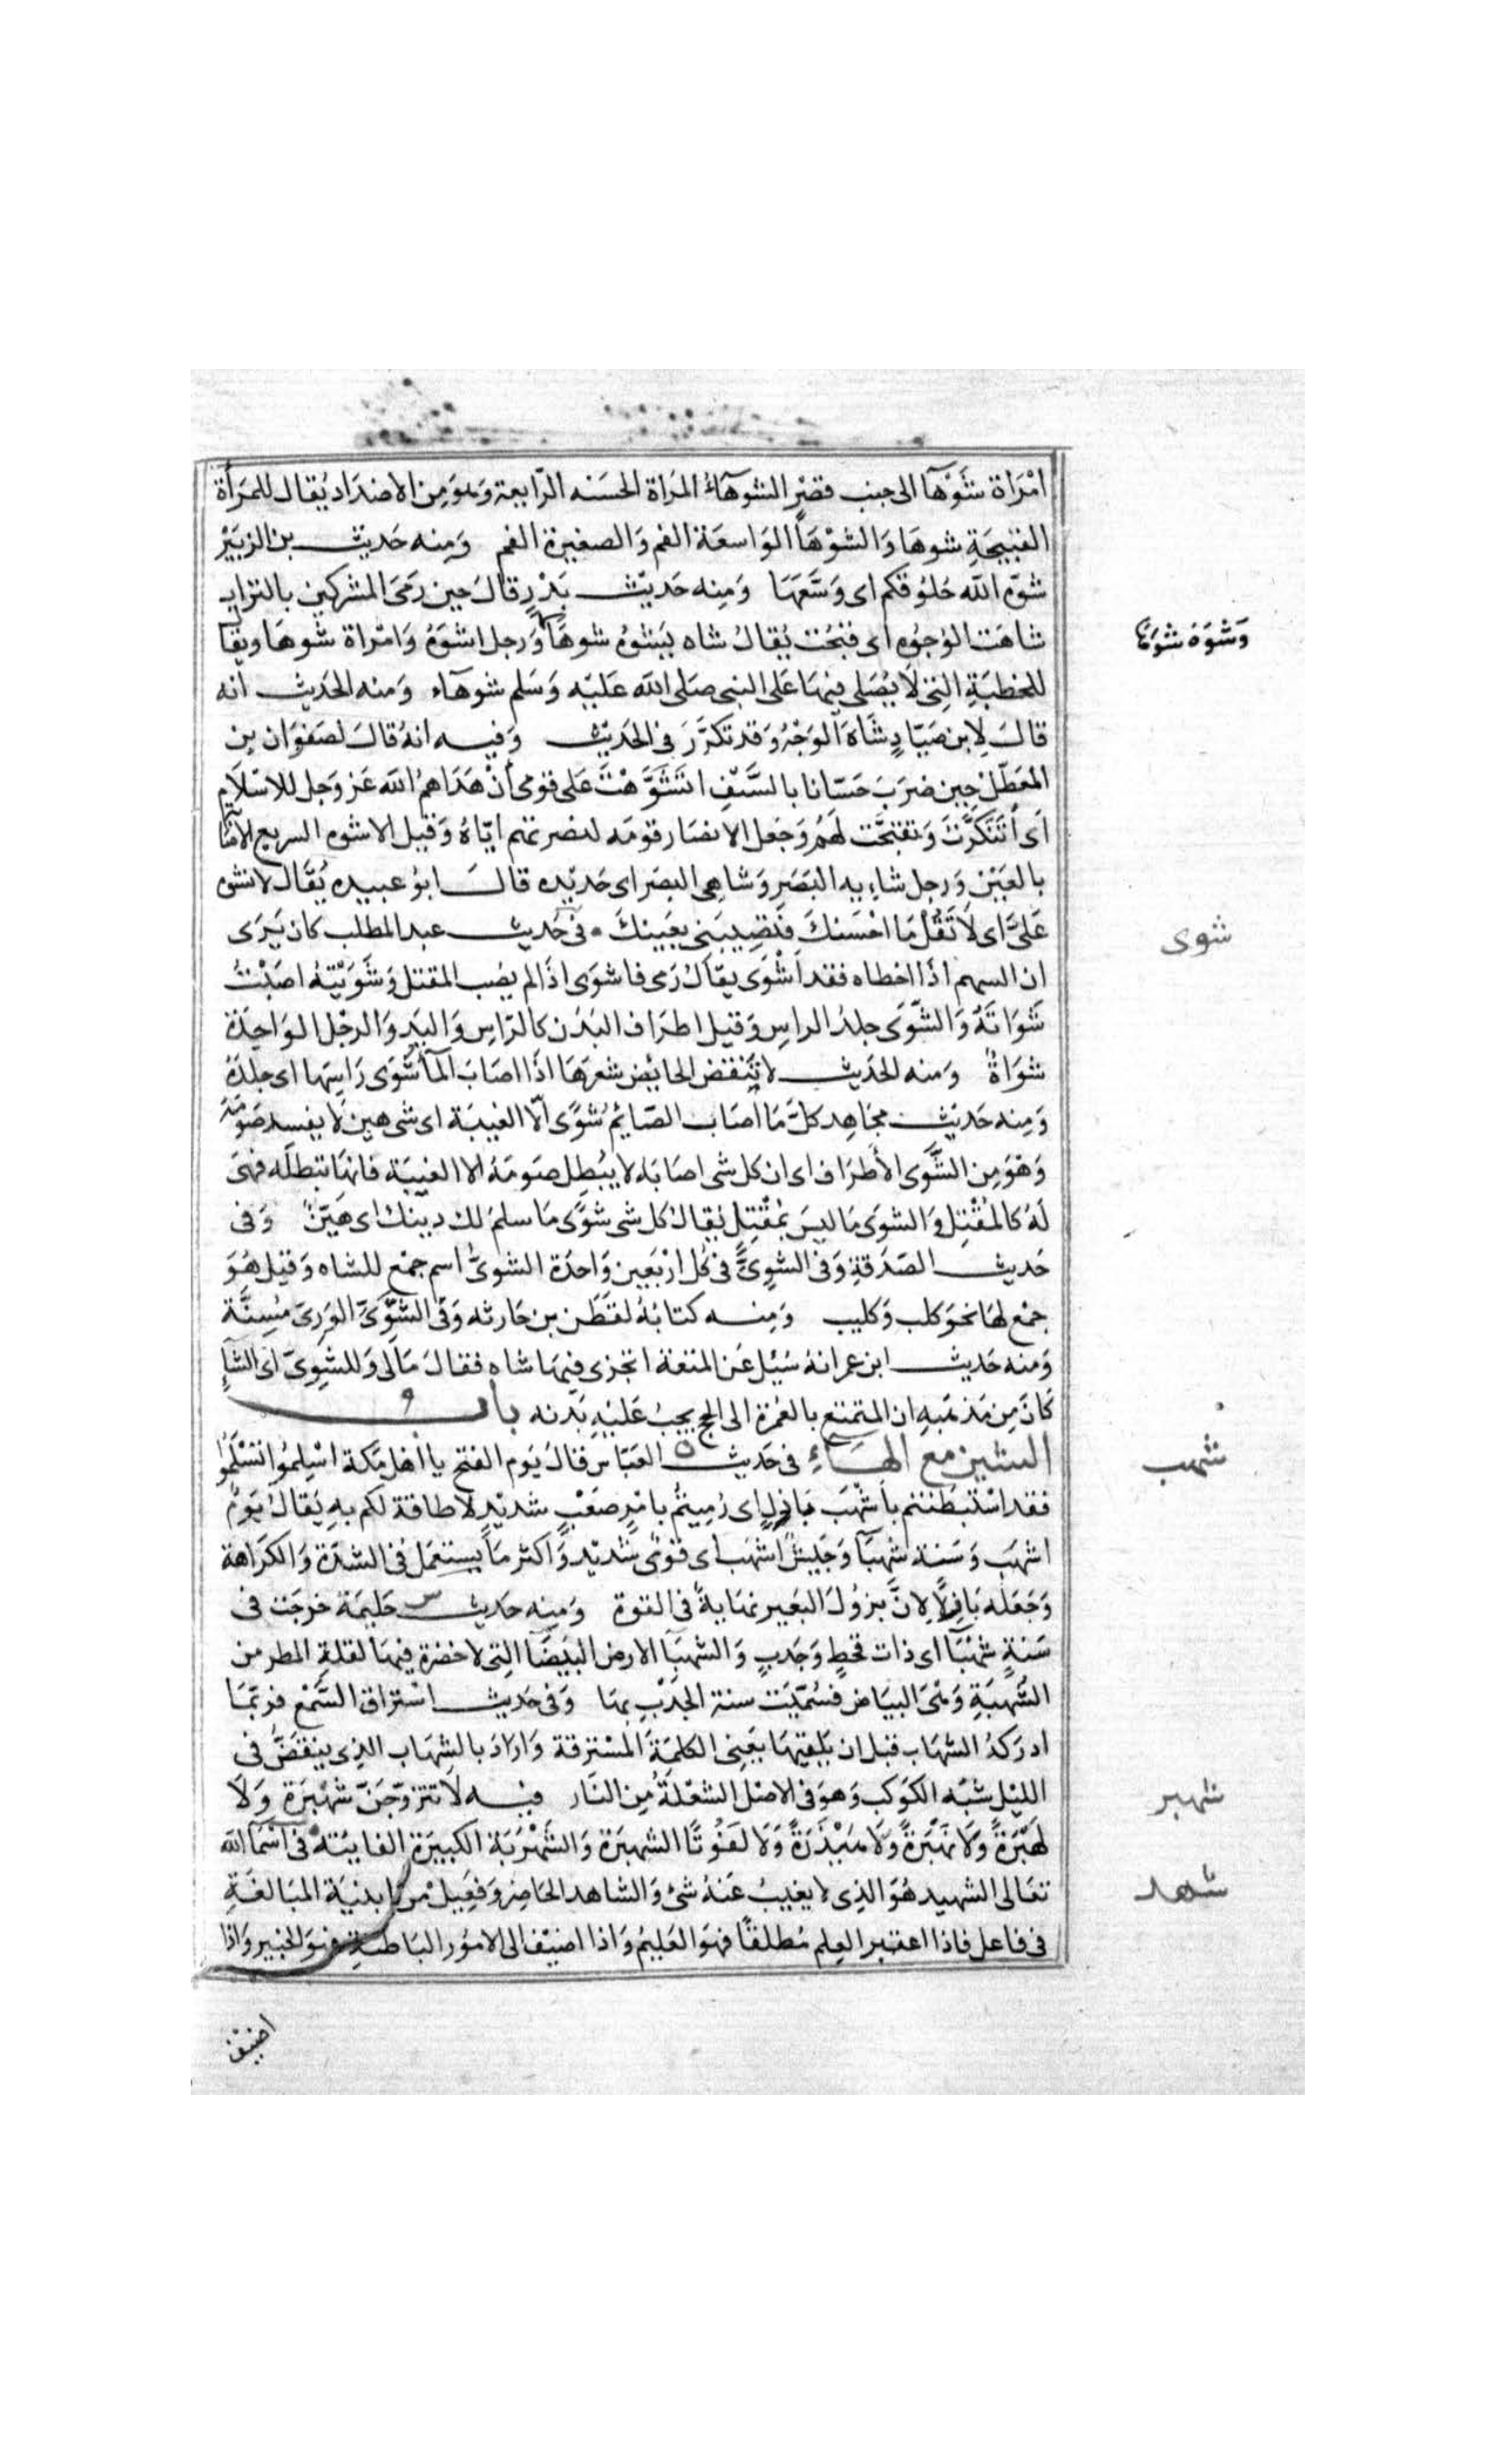 امْرَاة شَوْهَآ الى جنب قصْرٍ الشوهآءُ المرَاة الحسَنه الرّايعة وَهوَ مِن الاضدَاد يُقال للمَرأة
القبيحَةِ شوهَا وَالشوْهَآ الوَاسعَة الفم وَالصغيرة الفم وَمِنه حَديث بن الزبَيْر
شوّه الله حُلُوقكم اى وَسَّعَهَا وَمِنه حَديث بَدْرٍ قالَ حين رَمَى المشركين بالتراب
شاهَت الوُجُوه اى قبُحَت يُقالُ شاه يَشوُه شوهًا وَرجل اشوَهُ وَامْراة شوهَا ويقال
وَشَوِهَ شَوَهًا
للخطبَةِ التِى لَا يُصَلى فيهَا عَلى النبى صَلى الله عَليْه وَسَلم شوهآء وَمنه الحَديث انه
قالَ لِابن صَيّادٍ شَاهَ الوَجْهُ وَقد تكرَّرَ فى الحَديث وَفيه انهُ قالَ لصَفوَان بن
المُعَطّل حِين ضرَبَ حَسّانا بالسَّيْفِ اتَشَوَّهْتَ عَلى قومى أنْ هَدَاهمُ الله عَز وَجل للاسْلَامِ
اَى أتَنَكَّرْتَ وَتقبَّحْت لَهُمْ وَجَعل الانصَار قومَه لنصرتهم ايّاهُ وَقيل الاشوه السريع الاصابة
بالعَيْن وَرجل شاءِيه البَصَرِ وَشاهِى البصَر اى حَديْده قالَ ابوُ عبيده يُقَال لا تشوه
عَلىَّ اى لَا تَقُلْ مَا احْسَنكَ فتصِيبَنى بعَينكَ فى حَديث عبد المطلب كان يَرَى
شوى
ان السهم اذَا اخطاه فقد اَشْوَى يقالُ رَمى فاشوَى اذَا لم يصُب المقتل وَشوَيْتهُ اصَبْتُ
شَوَاتَهُ وَالشّوَى جلدُ الراسِ وَقيل اطرَاف البَدَن كالرّاسِ وَاليَدِ وَالرجْل الوَاحِدَة
شوَاةٌ وَمنه الحَديث لا تَنْقض الحائِض شعَرهَا اذَا اصَابَ المآ شَوَى رَاسِهَا اى جلدَهُ
وَمِنه حَديث مجَاهِد كلُّ مَا اصَاب الصّايمُ شَوًى الّا الغيبَة اى شى هين لَا يفسد صَوْمَهُ
وَهوَ مِن الشَّوَى الأطرَاف اى ان كل شى اصَابَه لا يبُطِل صَومَهُ الا الغيبَة فانهَا تبطله فهىَ
لَهُ كالمقْتِل وَالشوَى مَا ليسَ بمَقْتِلٍ يُقالُ كل شى شوًى مَا سلمَ لك دينك اى هَيّنٌ وَفى
حَديث الصّدَقةِ وَفى الشّوِىِّ فى كل ارْبَعين وَاحدَة الشوىُّ اسم جمْع للشاه وَقيل هُوَ
جمْع لهَا نحوَ كلب وَكليب وَمِنه كتابُهُ لقَطن بن حَارثه وَفى الشّوِىّ الوَرِىّ مُسِنَّة
وَمنه حَديث ابن عمر انهُ سُئل عَن المتعَة اتجزى فيهَا شاه فقالَ مَالى وَللشِوِىّ اى الشآءِ
كَانَ مِن مَذهَبهِ ان المتمتع بالعُمْرَة الى الحج يجبُ عَليْهِ بَدَنه بَابُ
الشين مع الهَاءِ فى حَديث العَبّاس قالَ يَوم الفتح يا اهْل مَكة اسْلِمُوا تَسْلَمُوا
شهب
فقد اسْتبْطَنتم باَشْهَبَ بَازِلٍ اى رُمِيتُم بامْرٍ صَعْبٍ شديْدٍ لا طاقة لكم بهِ يقالُ يَومٌ
اشهَب وَسَنة شهبَآ وَجَيشٌ اشهَب اى قوىٌ شديْد وَاكثر مَا يستعمَل فى الشدّة وَالكرَاهة
وَجَعَله بَازِلًا لِانَّ بزُولَ البَعير نهَايةٌ فى القوة وَمِنه حَديث حَليمَة خرجَت فى
سَنةٍ شهْبَآ اى ذات قحْطٍ وَجَدبٍ وَالشهبَآ الارض البَيضَآ التِى لا خضرة فيهَا لقلةِ المطر من
الشُّهبَةِ وَهىَ البيَاض فسُمّيَت سنة الجَدْبِ بهَا وَفى حَديث اسْترَاق السَّمْع فرُبّمَا
ادرَكهُ الشهَاب قبل ان يَلقيَهَا يَعْنِى الكلِمَة المسْترقة وَارَادَ بالشِهَاب الذِى يَنقضُّ فى
الليْل شبْه الكوَكب وَهوَ فى الاصْل الشعْلَةُ مِن النَار فيْه لَا تتزوّجَنّ شَهْبَرَة وَلَا
شهبر
لَهْبَرَةً وَلَا نَهْبَرَةً وَلَا هَيْذَرَةً وَلَا لَفُوتًا الشهبرَة وَالشَهْرَبَة الكبيرَة الفانيَة فى اسْمَا الله
تعَالى الشهيد هُوَ الذِى لا يغيبُ عَنهُ شئ وَالشاهد الحَاضِر وَفَعِيلٌ مِن ابنيَة المبَالغَةِ
شهد
فى فاعل فاذا اعتبر العِلم مُطلقًا فهوَ العَليْمُ وَاذا اضيْف الى الامُوْر البَاطنَةِ فهوَ الخبير وَاذا
اضيْف